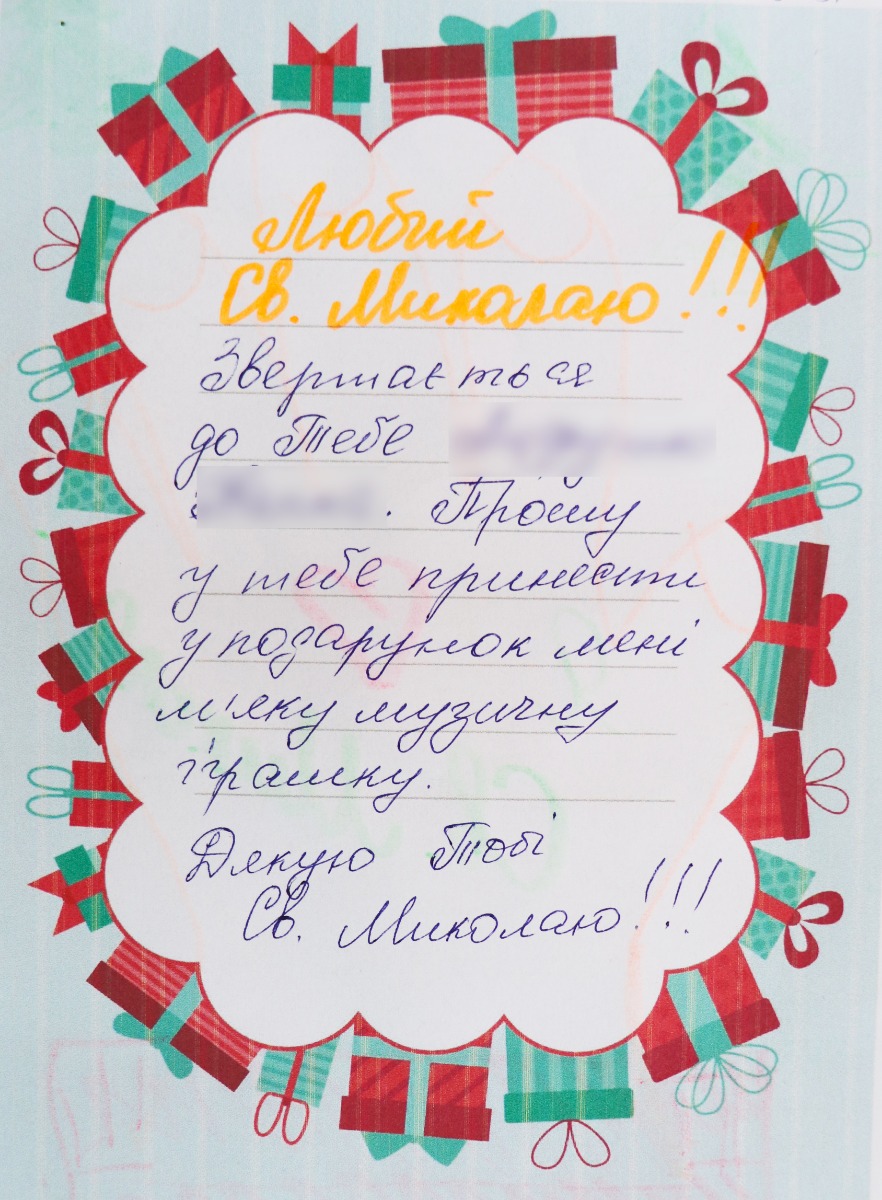 Любий
Св. Миколаю!!!
Звертається
до Тебе
. Прошу
у тебе принести
у подарунок мені
м'яку музичну
іграшку.
Дякую Тобі
Св. Миколаю!!!